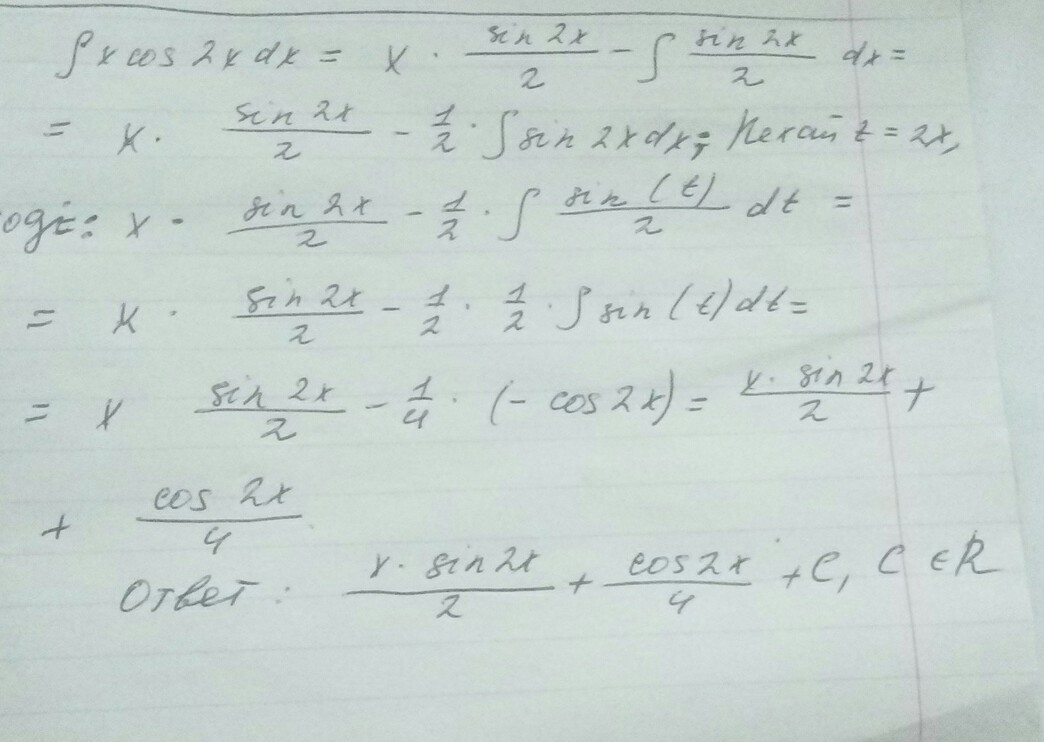 ∫ x cos 2x dx = x · sin 2x / 2 − ∫ sin 2x / 2 dx =
= x · sin 2x / 2 − 1/2 · ∫ sin 2x dx; Нехай t = 2x,
тоді: x · sin 2x / 2 − 1/2 · ∫ sin (t) / 2 dt =
= x · sin 2x / 2 − 1/2 · 1/2 · ∫ sin (t) dt =
= x sin 2x / 2 − 1/4 · (− cos 2x) = x · sin 2x / 2 +
+ cos 2x / 4
Ответ: x · sin 2x / 2 + cos 2x / 4 + C, C ∈ R